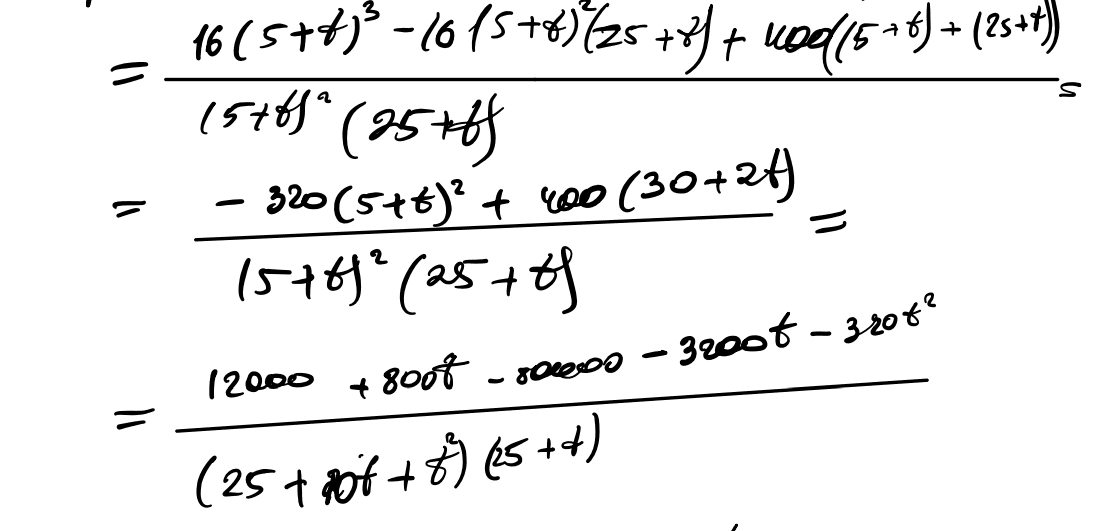 = \frac{16(5+t)^3 - 16(5+t)^2(25+t) + 400((5+t)+(25+t))}{(5+t)^2(25+t)} =
= \frac{-320(5+t)^2 + 400(30+2t)}{(5+t)^2(25+t)} =
= \frac{12000 + 800t - 8000 - 3200t - 320t^2}{(25+10t+t^2)(25+t)}